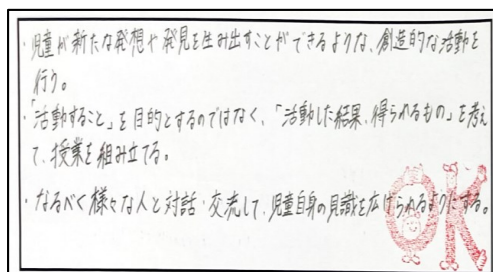 ・児童が新たな発想や発見を生み出すことができるような、創造的な活動を
行う。
・「活動すること」を目的とするのではなく、「活動した結果、得られるもの」を考え
て、授業を組み立てる。
・なるべく様々な人と対話・交流して、児童自身の見識を広げられるようにする。
OK